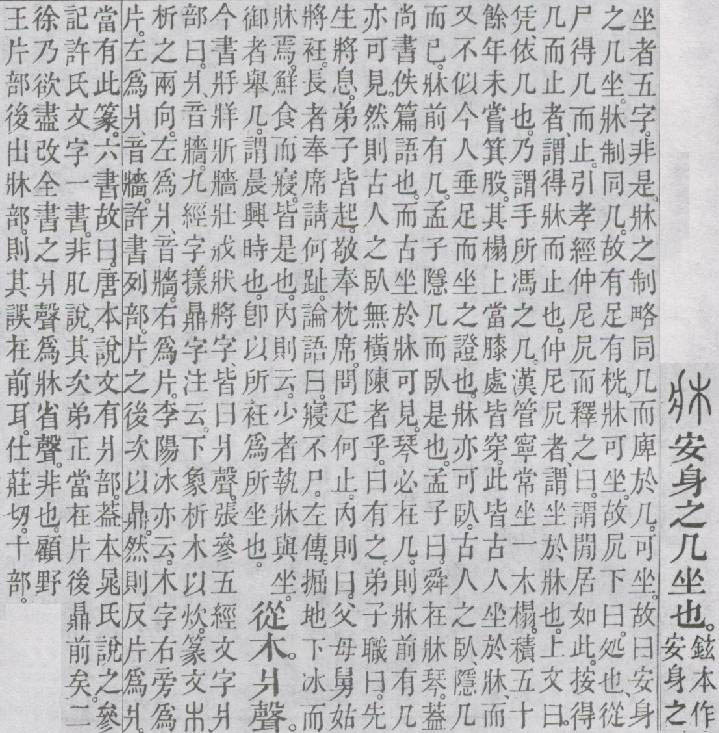 牀 安身之几坐也。鉉本作
安身之
坐者五字。非是。牀之制略同几而庳於几。可坐。故曰安身
之几坐。牀制同几。故有足有桄。牀可坐。故凥下曰。処也。從
尸得几而止。引孝經仲尼凥而釋之曰。謂閒居如此。按得
几而止者、謂得牀而止也。仲尼凥者、謂坐於牀也。上文曰。
凭、依几也。乃謂手所馮之几。漢管寧常坐一木榻。積五十
餘年未嘗箕股。其榻上當膝處皆穿。此皆古人坐於牀、而
又不似今人垂足而坐之證也。牀亦可臥。古人之臥、隱几
而已。牀前有几。孟子隱几而臥是也。孟子曰舜在牀琴。蓋
尚書佚篇語也。而古坐於牀可見。琴必在几。則牀前有几
亦可見。然則古人之臥無橫陳者乎。曰有之。弟子職曰。先
生將息。弟子皆起。敬奉枕席。問疋何止。內則曰。父母舅姑
將衽。長者奉席請何趾。論語曰。寢不尸。左傳。掘地下冰而
牀焉。鮮食而寢。皆是也。內則云。少者執牀與坐。
御者舉几。謂晨興時也。卽以所衽爲所坐也。
從木。爿聲。
今書牁牂斨牆壯戕狀將字皆曰爿聲。張參五經文字爿
部曰。爿、音牆。九經字樣鼎字注云。下象析木以炊。篆文木
析之兩向。左爲爿、音牆。右爲片。李陽冰亦云。木字右旁爲
片。左爲爿、音牆。許書列部。片之後次以鼎。然則反片爲爿。
當有此篆。六書故曰。唐本說文有爿部。蓋本晁氏說之參
記許氏文字一書。非肊說。其次弟正當在片後鼎前矣。二
徐乃欲盡改全書之爿聲爲牀省聲。非也。顧野
王片部後出牀部。則其誤在前耳。仕莊切。十部。